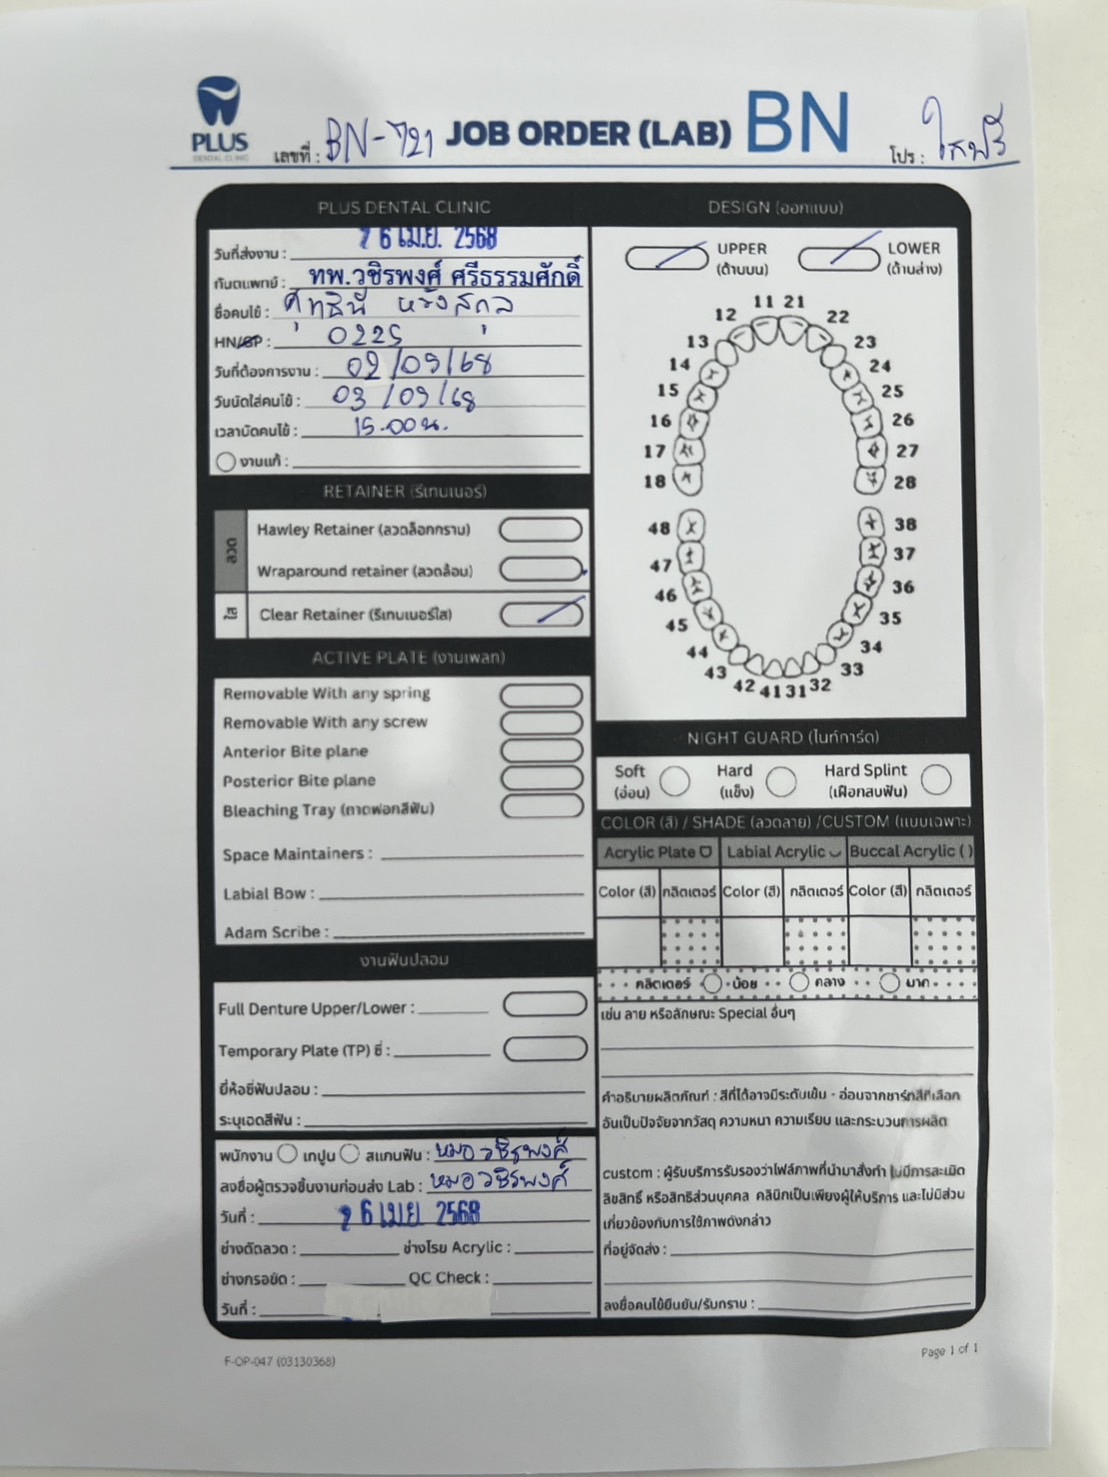 PLUS
DENTAL CLINIC
เลขที่ : BN-721 JOB ORDER (LAB) BN
โปร : ใสฟรี
PLUS DENTAL CLINIC
วันที่ส่งงาน : 26 เม.ย. 2568
ทันตแพทย์ : ทพ.วชิรพงศ์ ศรีธรรมศักดิ์
ชื่อคนไข้ : ศุทธินี หวังสกุล
HN/GP : 0225
วันที่ต้องการงาน : 02/09/68
วันนัดใส่คนไข้ : 03/09/68
เวลานัดคนไข้ : 15.00 น.
งานแก้ :
RETAINER (รีเทนเนอร์)
ลวด
Hawley Retainer (ลวดล็อกกราม)
Wraparound retainer (ลวดล้อม)
ใส
Clear Retainer (รีเทนเนอร์ใส)
ACTIVE PLATE (งานเพลท)
Removable With any spring
Removable With any screw
Anterior Bite plane
Posterior Bite plane
Bleaching Tray (ถาดฟอกสีฟัน)
Space Maintainers :
Labial Bow :
Adam Scribe :
งานฟันปลอม
Full Denture Upper/Lower :
Temporary Plate (TP) ซี่ :
ยี่ห้อซี่ฟันปลอม :
ระบุเฉดสีฟัน :
พนักงาน เทปูน สแกนฟัน : หมอวชิรพงศ์
ลงชื่อผู้ตรวจชิ้นงานก่อนส่ง Lab : หมอวชิรพงศ์
วันที่ : 26 เม.ย. 2568
ช่างดัดลวด : ช่างโรย Acrylic :
ช่างกรอขัด : QC Check :
วันที่ :
DESIGN (ออกแบบ)
UPPER LOWER
(ด้านบน) (ด้านล่าง)
11 21
12 22
13 23
14 24
15 25
16 26
17 27
18 28
48 38
47 37
46 36
45 35
44 34
43 33
42 41 31 32
NIGHT GUARD (ไนท์การ์ด)
Soft Hard Hard Splint
(อ่อน) (แข็ง) (เฝือกสบฟัน)
COLOR (สี) / SHADE (ลวดลาย) /CUSTOM (แบบเฉพาะ)
Acrylic Plate Labial Acrylic Buccal Acrylic ( )
Color (สี) กลิตเตอร์ Color (สี) กลิตเตอร์ Color (สี) กลิตเตอร์
กลิตเตอร์ น้อย กลาง มาก
เช่น ลาย หรือลักษณะ Special อื่นๆ
คำอธิบายผลิตภัณฑ์ : สีที่ได้อาจมีระดับเข้ม - อ่อนจากชาร์ทสีที่เลือก
อันเป็นปัจจัยจากวัสดุ ความหนา ความเรียบ และกระบวนการผลิต
custom : ผู้รับบริการรับรองว่าไฟล์ภาพที่นำมาสั่งทำ ไม่มีการละเมิด
ลิขสิทธิ์ หรือสิทธิส่วนบุคคล คลินิกเป็นเพียงผู้ให้บริการ และไม่มีส่วน
เกี่ยวข้องกับการใช้ภาพดังกล่าว
ที่อยู่จัดส่ง :
ลงชื่อคนไข้ยืนยัน/รับทราบ :
F-OP-047 (03130368)
Page 1 of 1